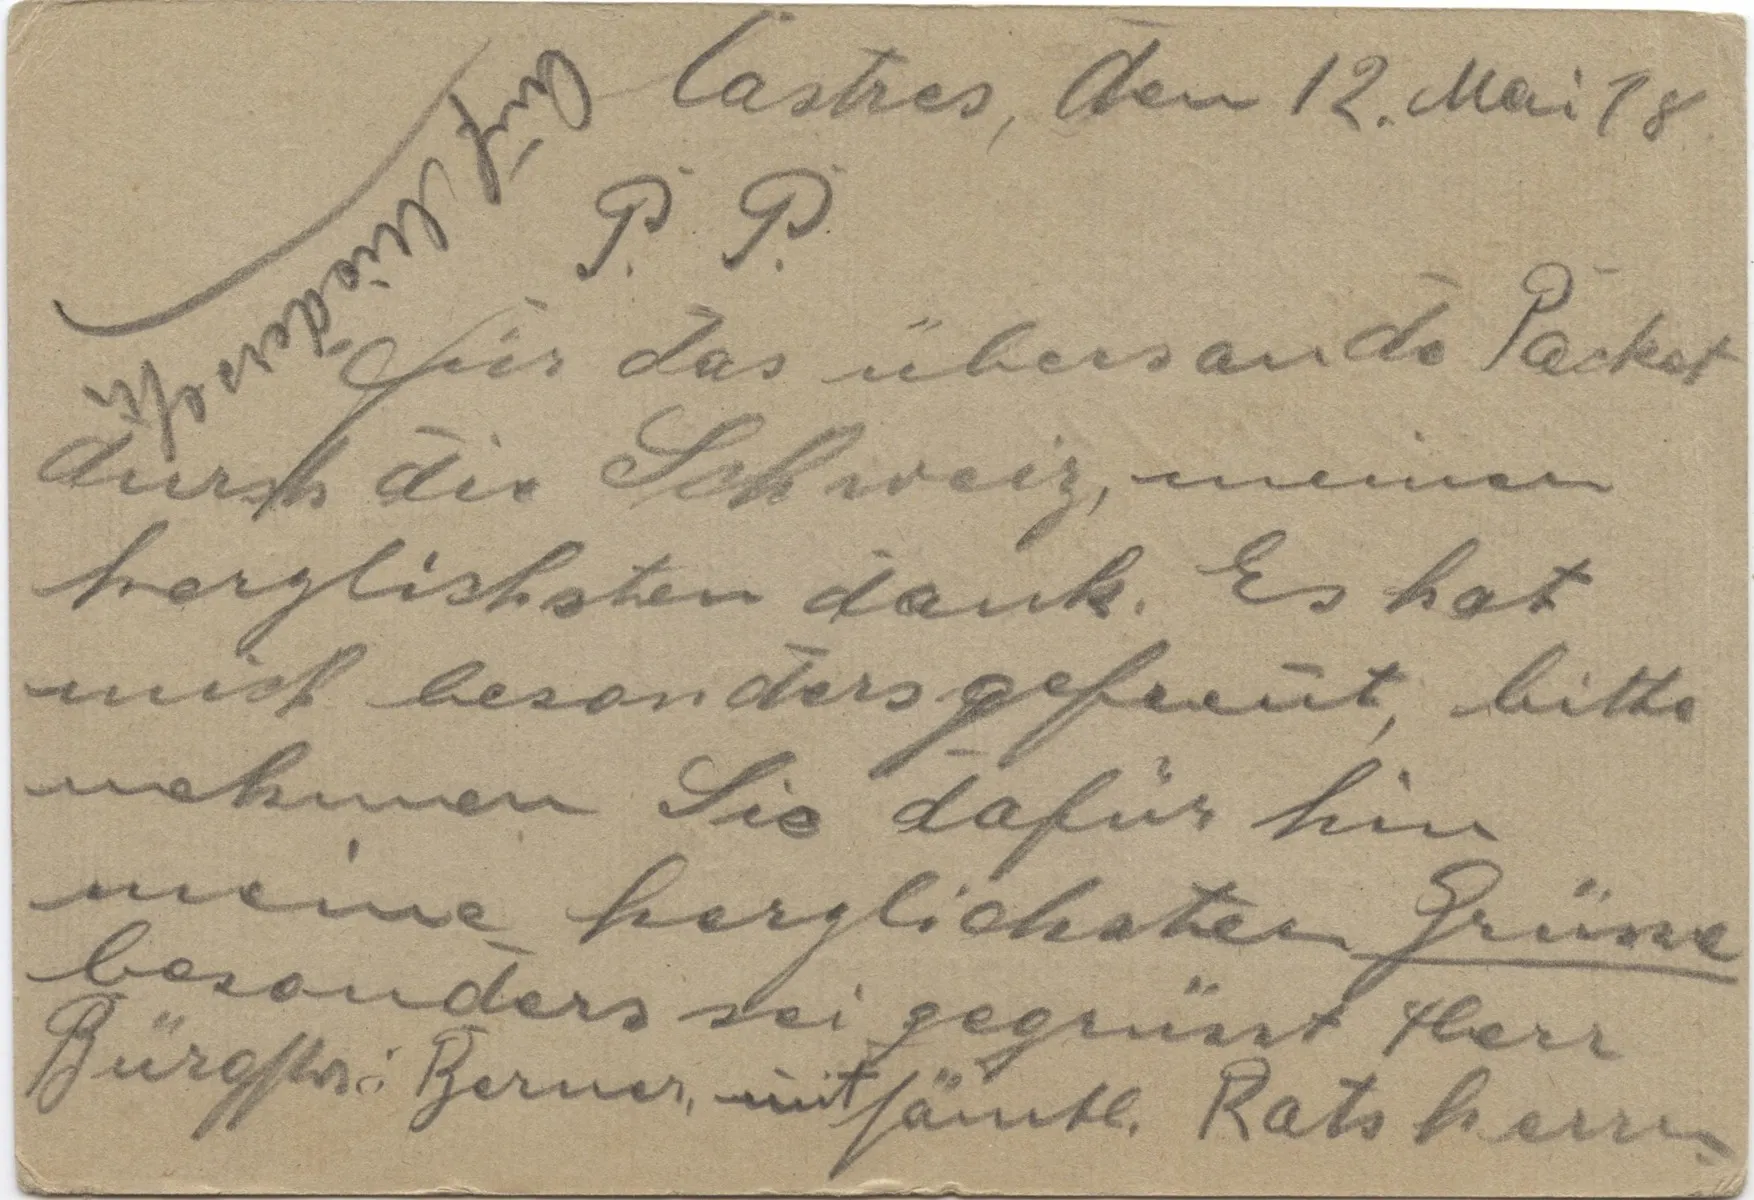 Castres, den 12. Mai 18.
P. P.
Für das übersande Packet
durch die Schweiz, meinen
herzlichsten dank. Es hat
mich besonders gefreut, bitte
nehmen Sie dafür hin
meine herzlichsten Grüsse
besonders sei gegrüsst Herr
Bürgstr: Berner, mit sämtl. Ratsherrn
Auf Wiedersehn